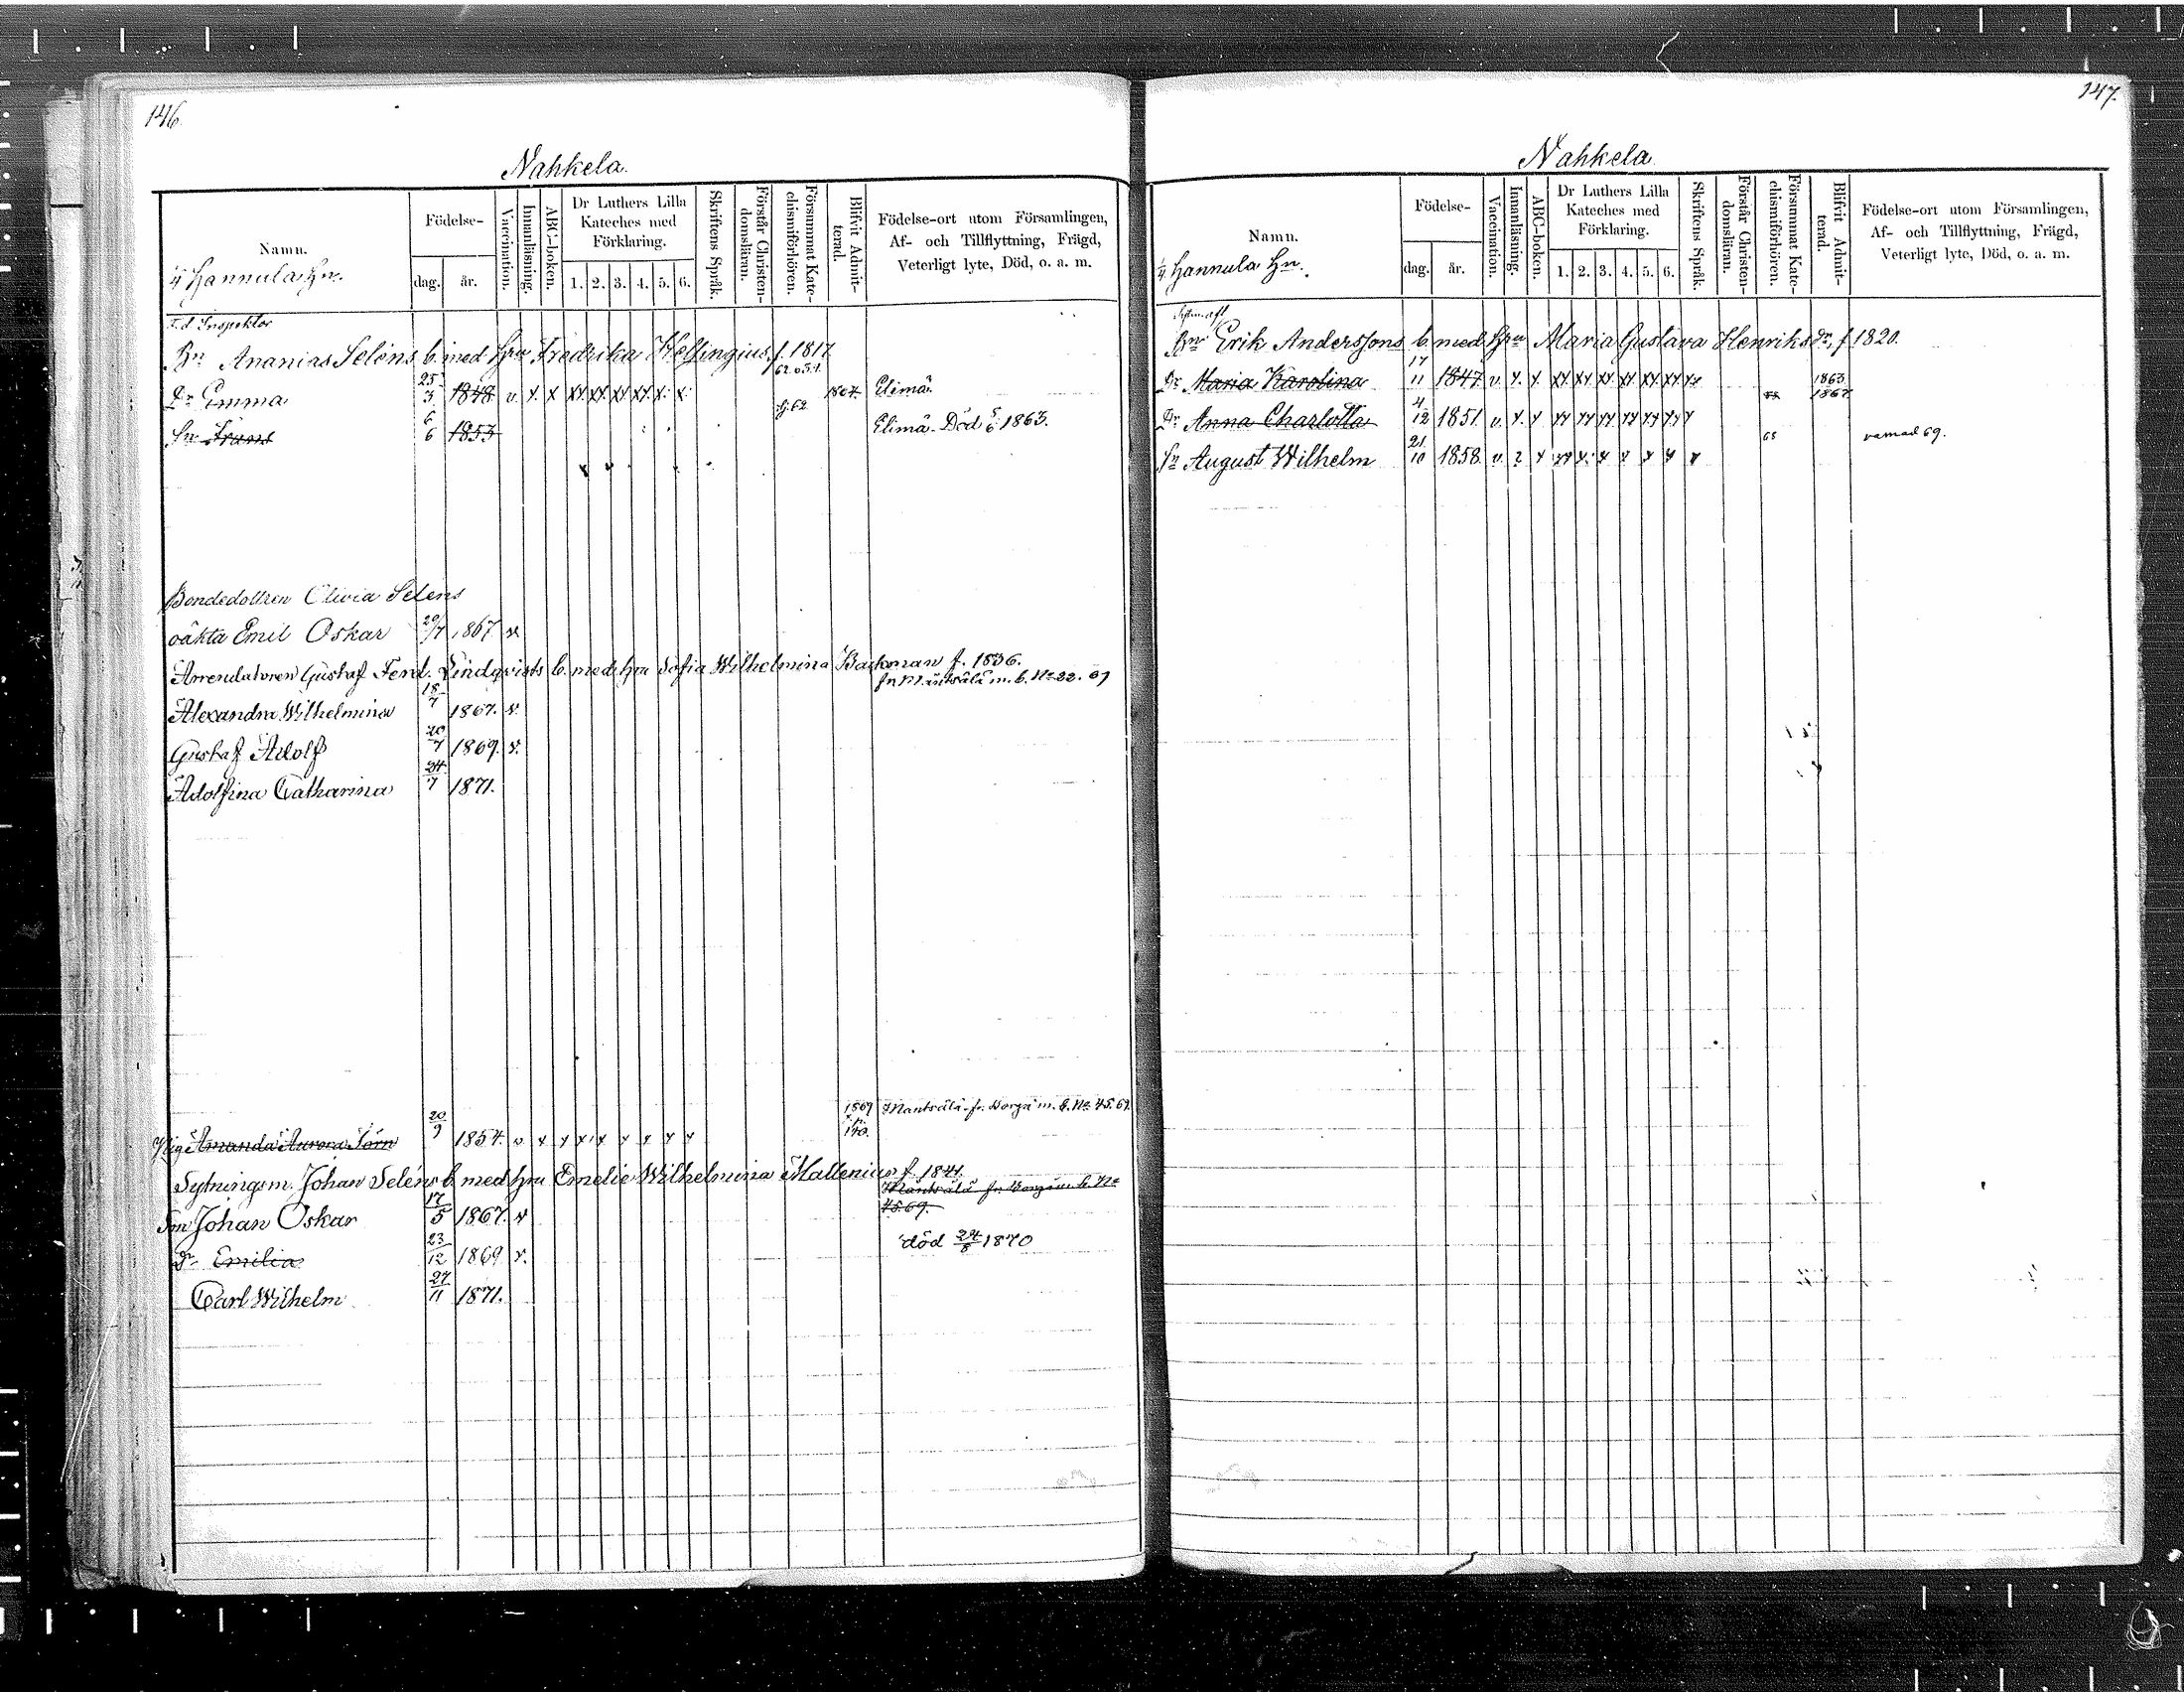 146.
Nahkela.
Namn.
Födelse-
dag.
år.
Vaccination.
Innanläsning.
ABC-boken.
Dr Luthers Lilla Kateches med Förklaring.
1. 2. 3. 4. 5. 6.
Skriftens Språk.
Förstår Christendomsläran.
Försummat Katechismiförhören.
Blifvit Admitterad.
Födelse-ort utom Församlingen,
Af- och Tillflyttning, Frägd,
Veterligt lyte, Död, o. a. m.
Hannula Hn.
F.d Inspektor
Bn Ananias Seléns b. med hru Fredrika Helsingius f. 1817
Dr Emma 25/3 1848 v. x x xx xx xx xx x x 1864 Elimä
Sn Frans 6/6 1853 Elimä. Död 5/6 1863.
Bondedottren Olivia Seléns
oäkta Emil Oskar 20/7 1867 v.
Arrendatoren Gustaf Ferd. Lindqvists b. med hru Sofia Wilhelmina Backman f. 1836.
fr Mäntsälä m. b. No 22. 69
Alexandra Wilhelmina 18/7 1867. v.
Gustaf Adolf 20/7 1869. v.
Adolfina Catharina 24/7 1871.
1869 Mäntsälä fr. Borgå m. b. No 45. 69.
Pig. Amanda Aurora Törn 20/9 1854. v x x x x x x x x 140.
Sytningsm. Johan Seléns b. med hru Emelie Wilhelmina Mallenius f. 1841.
Mäntsälä fr. Borgå m. b. No
45. 69.
Sn Johan Oskar 17/5 1867. v
Dr Emilia 23/12 1869 v. död 24/8 1870
Carl Wilhelm 27/11 1871.
147.
Nahkela.
Namn.
Födelse-
dag.
år.
Vaccination.
Innanläsning.
ABC-boken.
Dr Luthers Lilla Kateches med Förklaring.
1. 2. 3. 4. 5. 6.
Skriftens Språk.
Förstår Christendomsläran.
Försummat Katechismiförhören.
Blifvit Admitterad.
Födelse-ort utom Församlingen,
Af- och Tillflyttning, Frägd,
Veterligt lyte, Död, o. a. m.
Hannula Hn.
Bn Erik Anderssons b. med hru Maria Gustava Henriksdr, f 1820.
Dr Maria Karolina 17/11 1847 v. x. x. xx xx xx xx xx xx x 1863
Dr Anna Charlotta 4/12 1851. v. x. x xx xx xx xx xx xx x 1867
Sn August Wilhelm 21/10 1858. v. 2 x xx x x x x x x 68 vamad 69.